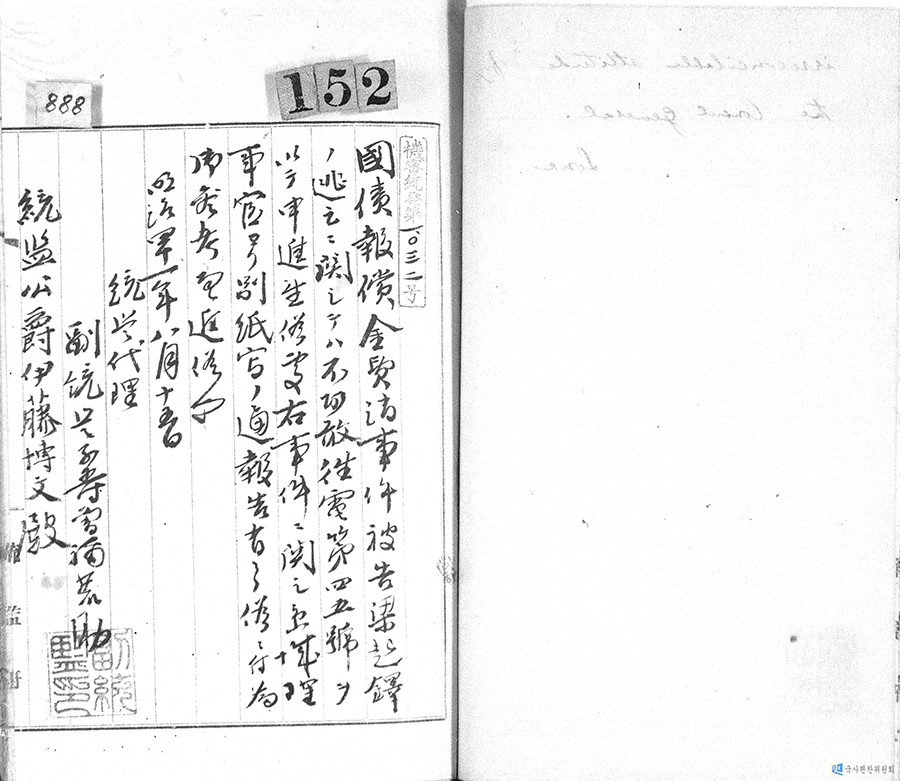 152
888
機密統發第一〇三二号
國債報償金費消事件被告梁起鐸
ノ逃亡ニ関シテハ不取敢往電第四五號ヲ
以テ申進置候處右事件ニ関シ京城理
事官ヨリ別紙写ノ通報告有之候ニ付為
御参考及進候也
明治四十一年八月十五日
統監代理
副統監子爵曾禰荒助
統監公爵伊藤博文殿
irreconcilable attitude of
the Consul general.
국사편찬위원회